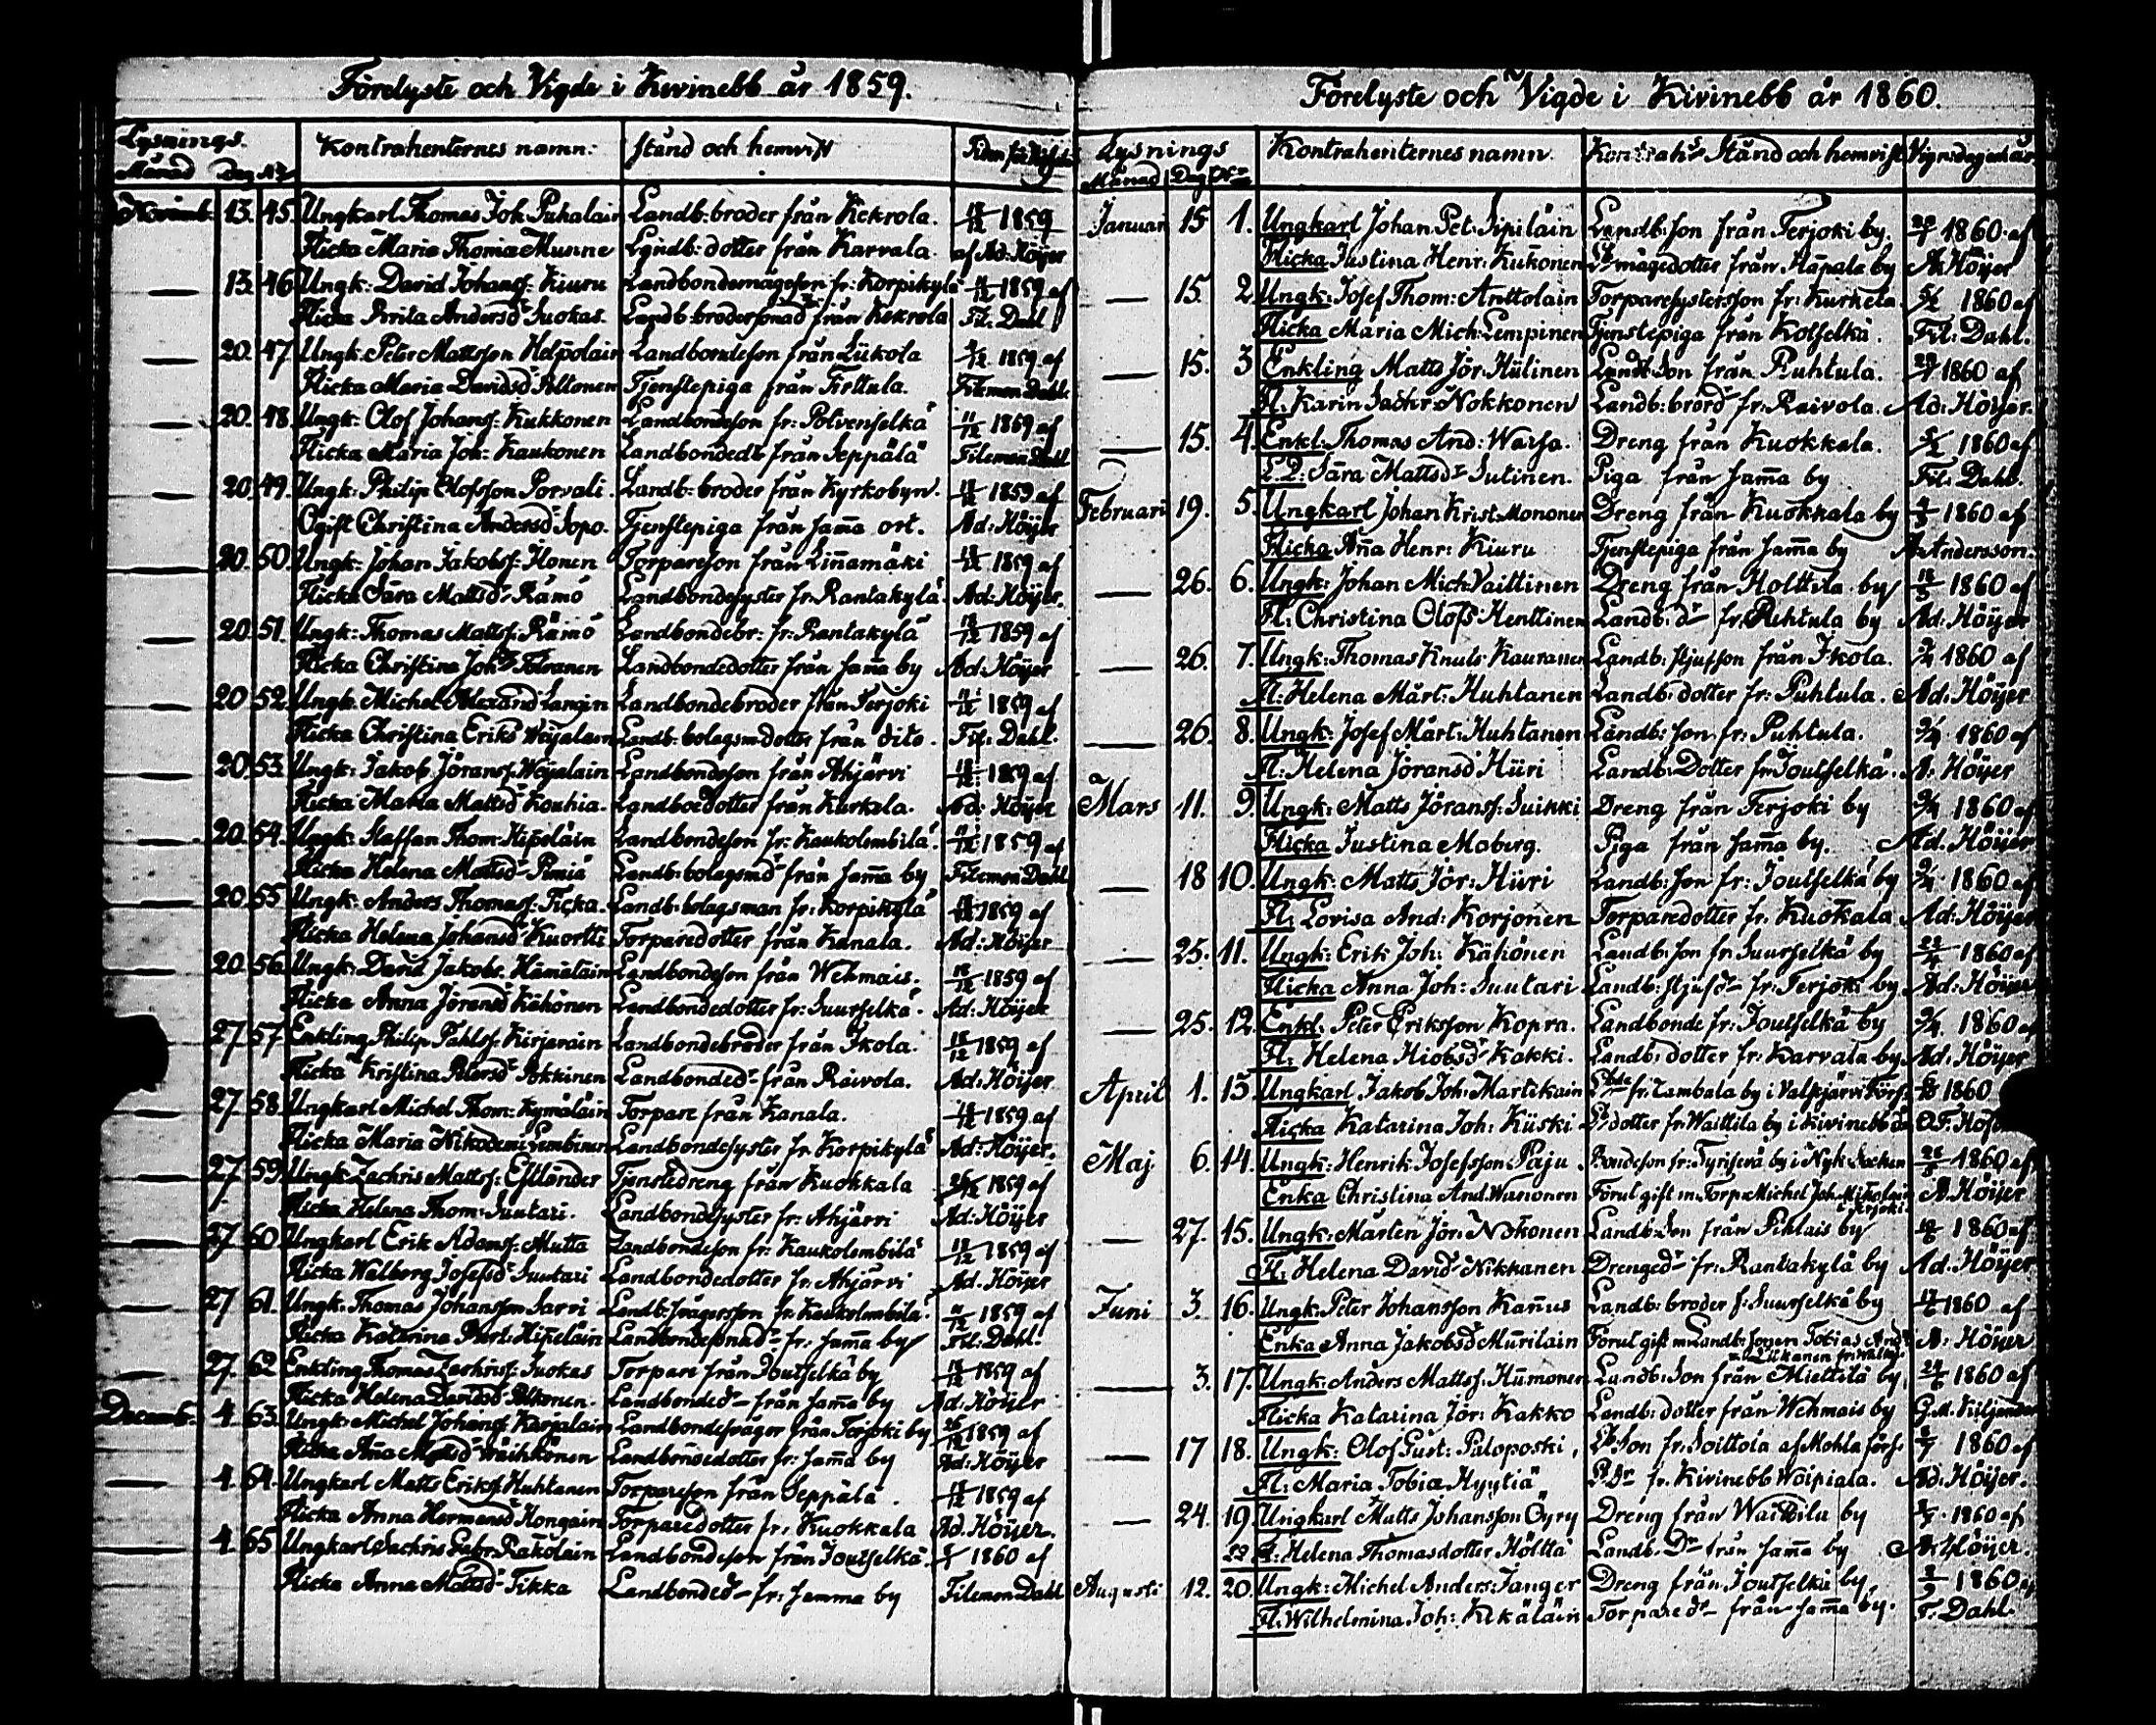 Förelyste och Vigde i Kivinebb år 1859.
Lysnings. Kontrahenternes namn: Stånd och hemvist
Månad Dag No
Novemb. 13. 45. Ungkarl Thomas Joh. Puhalain Landb: broder från Kekrola. 1859
Flicka Maria Thomæ Munne Landb: dotter från Karvala. af Ad: Höijer
13. 46 Ungk: David Johanss: Kiuru Landbondemågeson fr: Korpikylä 1859 af
Flicka Brita Andersd:r Suokas. Landb: brodersonad:r från Kekrola Fil: Dahl
20. 47. Ungk: Peter Mattsson Helpolain Landbondeson från Liikola 1859 af
Flicka Maria Davidsd:r Peltonen Tjenstepiga från Firttula. Filemon Dahl.
20. 48. Ungk: Olof Johanss: Kukkonen Landbondeson fr: Polvenselkä 1859 af
Flicka Maria Joh: Kaukonen Landbonded:r från Seppälä Filemon Dahl
20. 49. Ungk: Philip Olofsson Porvali. Landb: broder från Kyrkobyn. 1859 af
Ogift Christina Andersd:r Sopo. Tjenstepiga från sam̄a ort. Ad: Höijer
20. 50. Ungk: Johan Jakobss: Ihonen Torpareson från Lin̄amäki 1859 af
Flicka Sara Mattsd:r Rämö Landbondesyster fr. Rantakylä. Ad: Höijer.
20. 51. Ungk: Thomas Mattss: Rämö Landbondebr: fr: Rantakylä 1859 af
Flicka Christina Joh:d:r Tolvanen Landbondedotter från sam̄a by Ad: Höijer
20 52. Ungk. Michel Alexand: Langin Landbondebroder från Terjoki 1859 af
Flicka Christina Eriks Weijalain Landb: bolagsm:dotter från dito. Fil: Dahl.
20 53. Ungk: Jakob Jöranss: Weijalain Landbondeson från Ahjärvi 1859 af
Flicka Maria Mattsd:r Kouhia. Landboedotter från Kurkela. Ad: Höijer
20. 54. Ungk: Staffan Thom: Hipoläin Landbondeson fr: Kaukolembilä. 1859 af
Flicka Helena Mattsd:r Pimiä Landb: bolagsmd:r från sam̄a by Filemon Dahl
20 55 Ungk: Anders Thomass: Ticka. Landb: bolagsman fr: Korpikylä 1859 af
Flicka Helena Johansd:r Kuortti Torparedotter från Kanala. Ad: Höijer
20. 56. Ungk: David Jakobs. Hämäläin Landbondeson från Wehmais. 1859 af
Flicka Anna Jöransd:r Kähönen Landbondedotter fr: Suurselkä. Ad: Höijer
27. 57. Enkling Philip Pahlss: Kirjavain Landbondebroder från Ikola. 1859 af
Flicka Kristina Petersd:r Pokkinen Landbonded:r från Raivola. Ad: Höijer
27. 58. Ungkarl Michel Thom: Kymäläin Torpare från Kanala. 1859 af
Flicka Maria Nikodemi Lembinen Landbondesyster fr. Korpikylä Ad: Höijer.
27. 59. Ungk Zachris Mattss: Estlander Tjenstedreng från Kuokkala 1859 af
Flicka Helena Thom: Suutari. Landbondesyster fr: Ahjärvi Ad: Höijer
27. 60 Ungkarl Erik Adamss: Mutta Landbondeson fr: Kaukolembilä 1859 af
Flicka Walborg Josefsd:r Suutari Landbondedotter fr: Ahjärvi Ad: Höijer
27 61. Ungk. Thomas Johansson Sarvi Landb: svågersson fr. Kaukolembilä. 1859 af
Flicka Katarina Hipeläin Landbondesonad:r fr: sam̄a by Fil: Dahl.
27. 62 Enkling Thomas Zachriss: Suokas Torpare från Joutselkä by 1859 af
Flicka Helena Davidsd:r Peltonen. Landbonded:r från sam̄a by Ad: Höijer
Decemb. 4. 63. Ungk: Michel Johanss: Karjalain Landbondesvåger från Terjoki by 1859 af
Flicka An̄a Waihkonen Landbondedotter fr: sam̄a by Ad: Höijer
4. 64. Ungkarl Matts Erikss: Huhtanen Torpareson från Seppälä. 1859 af
Flicka Anna Hermansd:r Hongain Torparedotter fr: Kuokkala Ad. Höijer.
4. 65 Ungkarl Sachris Gabr: Räkoläin Landbondeson från Joutselkä. 1860 af
Flicka Anna Mattsd:r Tikka Landbonded:r fr: samma by Filemon Dahl
Förelyste och Vigde i Kivinebb år 1860.
Lysnings Kontrahenternes namn. Kontrah:s Stånd och hemvist Vignsdag och år
Månad Dag No
Januari 15 1. Ungkarl Johan Pet: Sipiläin Landb: son från Terjoki by. 1860 af
Flicka Justina Henr: Kukonen mågedotter från Hapala by A. Höijer
15. 2. Ungk: Josef Thom: Anttolain Torparesystersson fr: Kurkela. 1860 af
Flicka Maria Mich: Lempinen Tjenstepiga från Kotselkä. Fil: Dahl.
15. 3 Enkling Matts Jör. Hulinen Landb: Son från Puhtula. 1860 af
Fl: Karin Sachr: Nokkonen Landb: brord:r fr: Raivola. Ad: Höijer.
15. 4. Enkl: Thomas And: Warsa. Dreng från Kuokkala. 1860 af
Sara Mattsd:r Sutinen. Piga från sam̄a by Fil: Dahl.
Februari 19. 5. Ungkarl Johan Krist: Mononen Dreng från Kuokkala by 1860 af
Flicka An̄a Henr: Kiuru Tjenstepiga från sam̄a by A. Andersson.
26. 6. Ungk: Johan Mich: Vaittinen Dreng från Holttila by 1860 af
Fl: Christina Olofs Henttinen Landb: d:r fr: Puhtula by Ad: Höijer
26. 7. Ungk: Thomas Knuts: Kauranen Landb: stjufson från Ikola. 1860 af
Fl: Helena Mårt: Huhtanen Landb: dotter fr: Puhtula. Ad: Höijer
26. 8. Ungk: Josef Mårt: Huhtanen Landb: son fr: Puhtula. 1860 af
Fl: Helena Jöransd:r Hiiri Landb: Dotter fr. Joutselkä. A: Höijer
Mars 11. 9. Ungk: Matts Jöranss: Suikki Dreng från Terjoki by 1860 af
Flicka Justina Moberg. Piga från sam̄a by. Ad. Höijer
18 10. Ungk: Matts Jör: Hiiri Landb: son fr: Joutselkä by 1860 af
Fl: Lovisa And: Korjonen Torparedotter fr. Kuokala Ad: Höijer
25. 11. Ungk: Erik Joh: Kähönen Landb: son fr. Suurselkä by 1860 af
Flicka Anna Joh: Suutari Landb: stjufd:r fr: Terjoki by Ad: Höijer
25. 12. Enkl: Peter Eriksson Kopra. Landbonde fr: Joutselkä by 1860 af
Fl: Helena Hiobsd:r Kakki. Landb: dotter fr: Karvala by Ad: Höijer
April 1. 13 Ungkarl Jakob Joh: Martikain fr. Tambala by i Valkjärvi Förs: 1860
Flicka Katarina Joh: Kiiski dotter fr. Waittila by i Kivinebb O.F. Hof
Maj 6. 14. Ungk: Henrik Josefsson Paju Bondeson fr: Tyrisevä by i Nyk Socken 1860 af
Enka Christina And. Wanonen Förut gift m. Torp. Michel Joh. A. Höijer
27. 15. Ungk: Mårten Jör: Nokonen Landb: Son från Pihlais by 1860 af
Fl: Helena David: Nikkanen Dренged:r fr: Rantakylä by Ad. Höijer
Juni 3. 16. Ungk: Peter Johansson Kan̄us Landb: broder f: Suurselkä by 1860 af
Enka Anna Jakobsd:r Murilain Förut gift m Landb: sonen Tobias And: A: Höijer
3. 17. Ungk: Anders Mattss: Humonen Landb: Son från Miettilä by 1860 af
Flicka Katarina Jör: Kakko Landb: dotter från Wehmais by G.M. Kiljander
17 18. Ungk: Olof Gust: Paloposki, Son fr. Soittola af Mohla förs: 1860 af
Fl: Maria Tobiæ Hyytiä fr. Kivinebb Woipiala. Ad: Höijer.
24. 19. Ungkarl Matts Johansson Öyry Dreng från Waittila by 1860 af
Fl: Helena Thomasdotter Hölttä Landb. D:r från sam̄a by A: Höijer.
Augusti 12. 20. Ungk: Michel Anders: Janger Dreng från Joutselkä by, 1860 af
Fl: Wilhelmina Joh: Kekäläin Torpared:r från sam̄a by. F. Dahl.